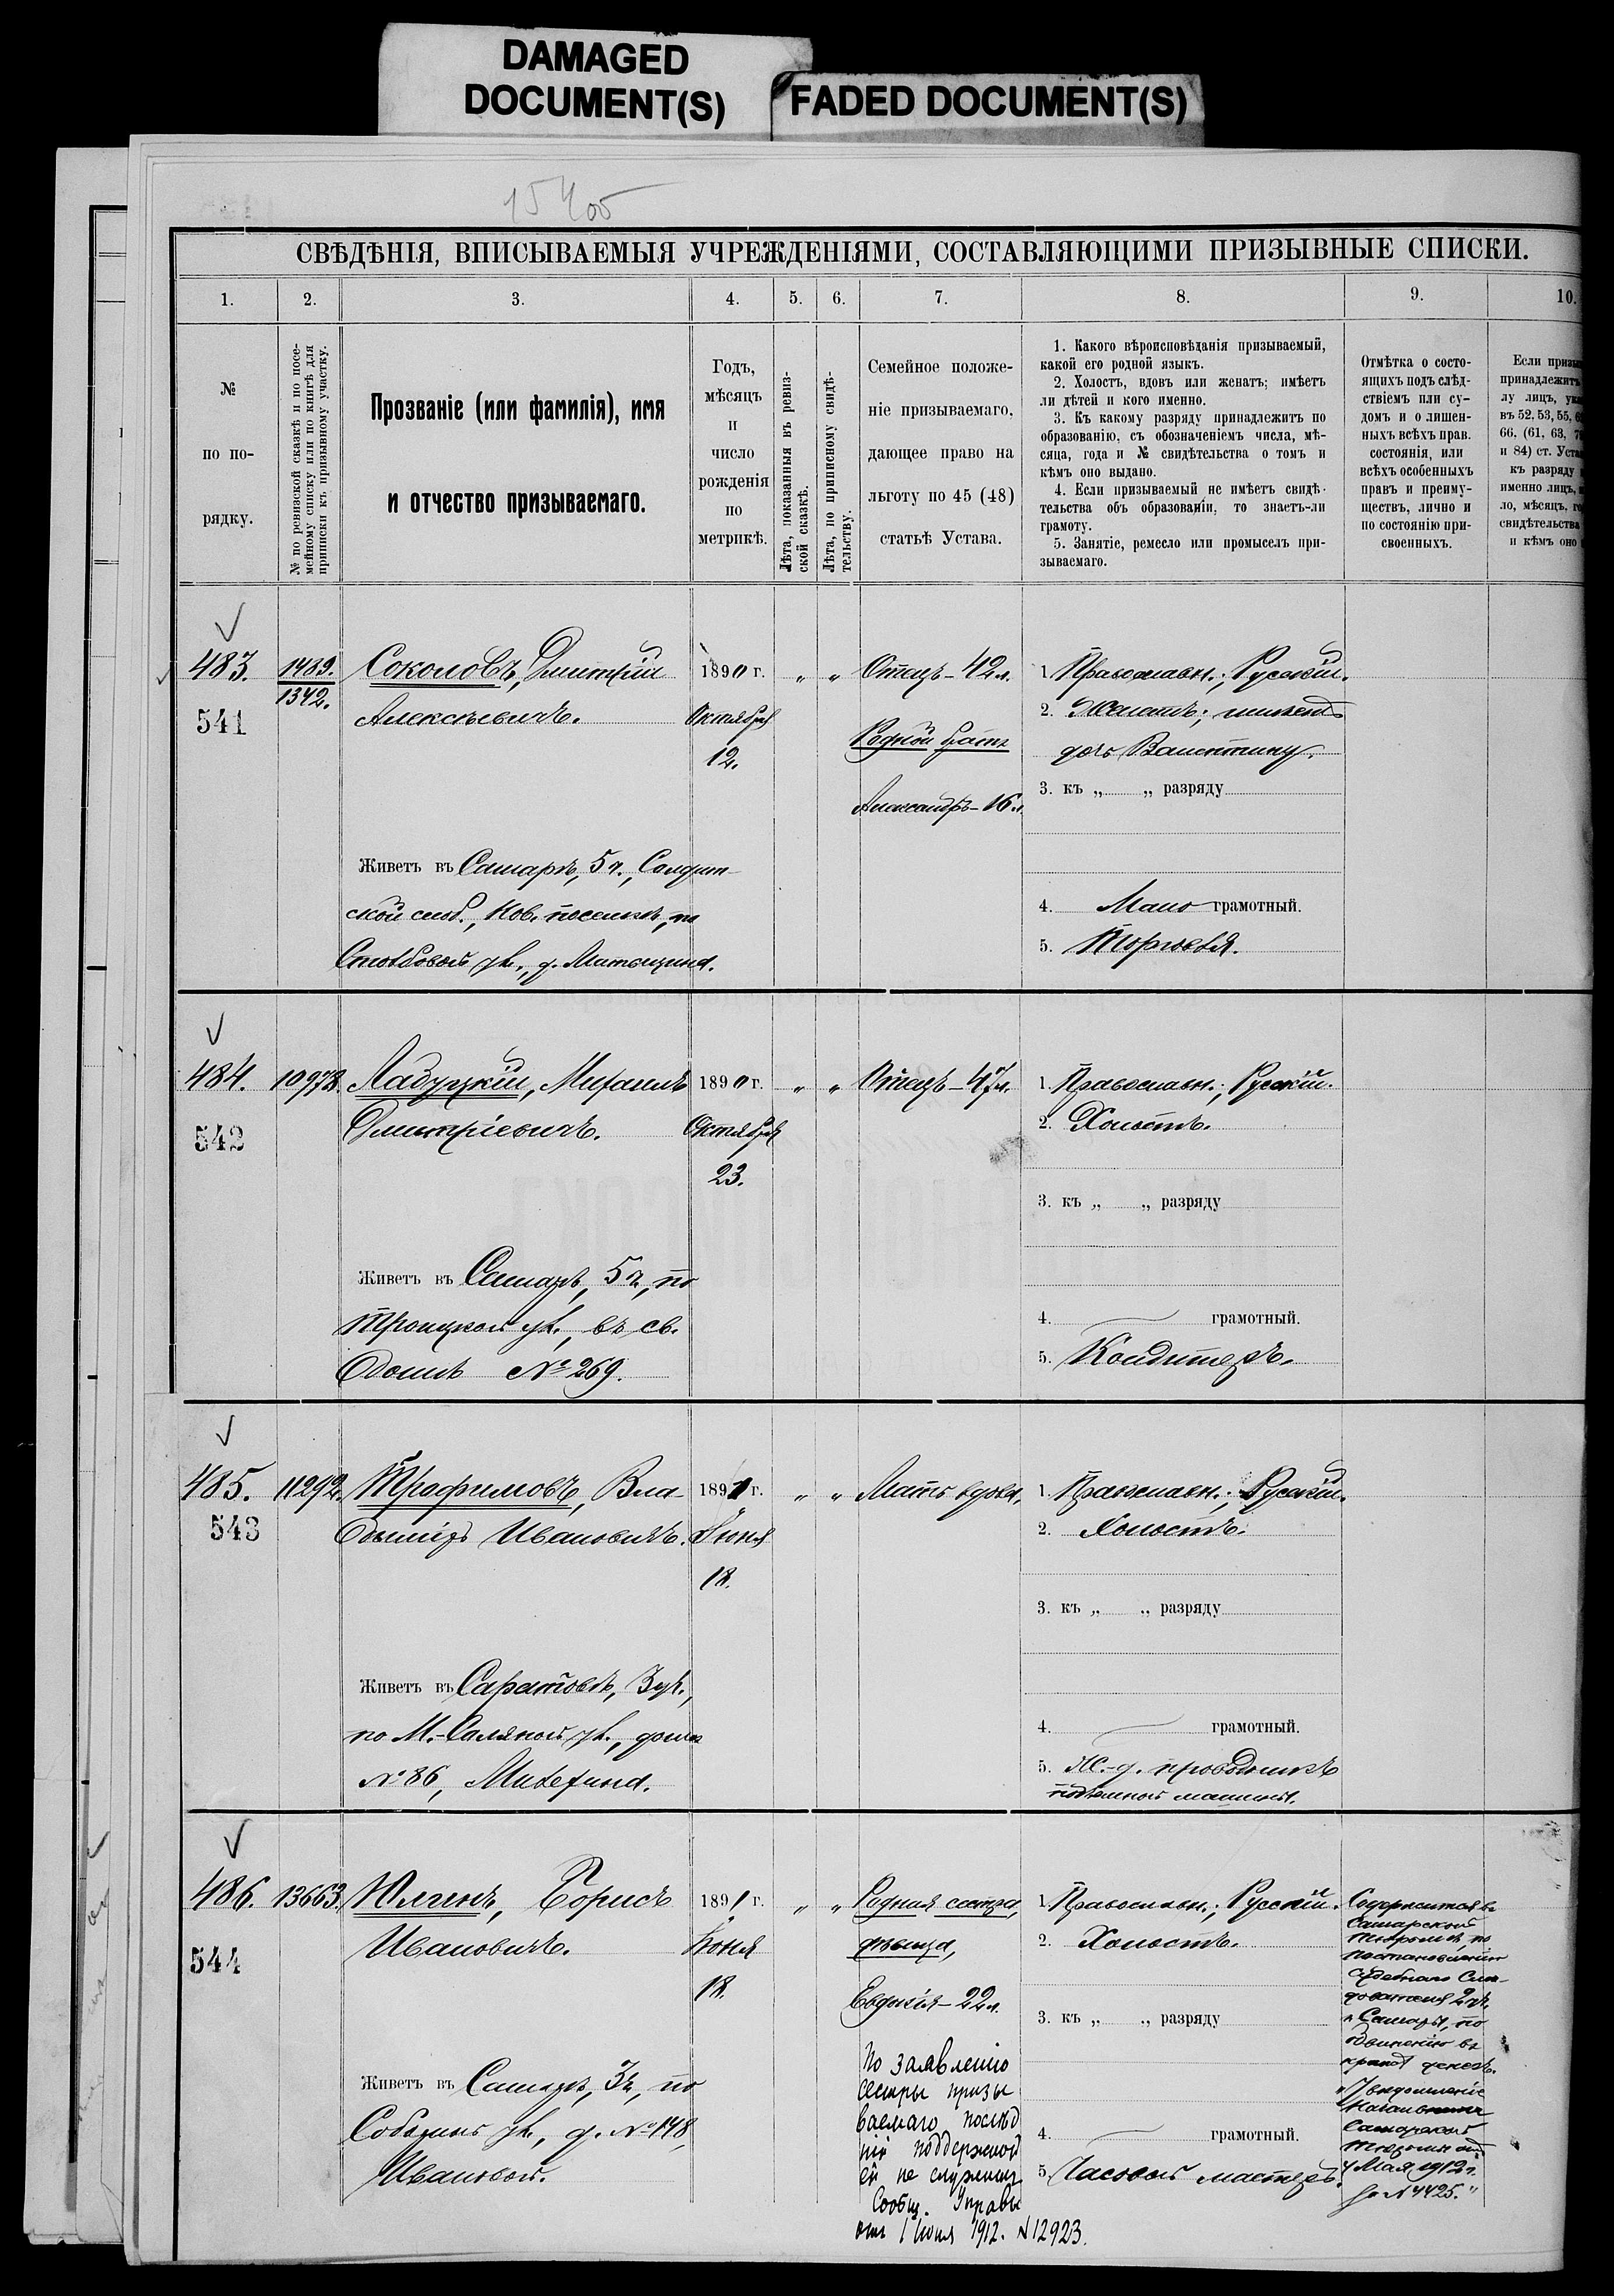 DAMAGED
DOCUMENT(S)
FADED DOCUMENT(S)
СВѢДѢНІЯ, ВПИСЫВАЕМЫЯ УЧРЕЖДЕНІЯМИ, СОСТАВЛЯЮЩИМИ ПРИЗЫВНЫЕ СПИСКИ.
1. 2. 3. 4. 5. 6. 7. 8. 9. 10.
№
по по-
рядку.
№ по ревизской сказкѣ и по посе-
мейному списку или по книгѣ для
приписки къ призывному участку.
Прозваніе (или фамилія), имя
и отчество призываемаго.
Годъ,
мѣсяцъ
и
число
рожденія
по
метрикѣ.
Лѣта, показанныя въ ревиз-
ской сказкѣ.
Лѣта, по приписному свидѣ-
тельству.
Семейное положе-
ніе призываемаго,
дающее право на
льготу по 45 (48)
статьѣ Устава.
1. Какого вѣроисповѣданія призываемый,
какой его родной языкъ.
2. Холостъ, вдовъ или женатъ; имѣетъ
ли дѣтей и кого именно.
3. Къ какому разряду принадлежитъ по
образованію, съ обозначеніемъ числа, мѣ-
сяца, года и № свидѣтельства о томъ и
кѣмъ оно выдано.
4. Если призываемый не имѣетъ свидѣ-
тельства объ образованіи, то знаетъ-ли
грамоту.
5. Занятіе, ремесло или промыселъ при-
зываемаго.
Отмѣтка о состо-
ящихъ подъ слѣд-
ствіемъ или су-
домъ и о лишен-
ныхъ всѣхъ прав.
состоянія, или
всѣхъ особенныхъ
правъ и преиму-
ществъ, лично и
по состоянію при-
своенныхъ.
Если
принадлежитъ
лу лицъ,
въ 52, 53, 55,
66, (61, 63,
и 84) ст.
къ разряду
именно лицъ,
ло, мѣсяцъ,
свидѣтельства
и кѣмъ оно
483.
541
1489.
1342.
Соколовъ, Дмитрій
Алексѣевичъ.
Живетъ въ Самарѣ, 5 ч., Солдат-
ской слоб., Нов. поселокъ, по
Столбовой ул., д.
1890 г.
Октября
12.
„ „
Отецъ - 42 л.
Родной братъ
Александръ - 16 л.
1. Православн.; Русскій.
2. Женатъ; имѣетъ
дочь Валентину.
3. къ „ „ разряду
4. Мало грамотный.
5. Торговля.
484.
542
10978.
Ладуцкій, Михаилъ
Дмитріевичъ.
Живетъ въ Самарѣ, 5 ч., по
Троицкой ул., въ св.
домѣ № 269.
1890 г.
Октября
23.
„ „
Отецъ - 47 л.
1. Православн.; Русскій.
2. Холостъ.
3. къ „ „ разряду
4. грамотный.
5. Кондитеръ.
485.
543
11292.
Трофимовъ, Вла-
диміръ Ивановичъ.
Живетъ въ Саратовѣ, 3 уч.,
по М.-Соляной ул., домъ
№ 86,
1891 г.
Іюня
18.
„ „
Мать вдова,
1. Православн.; Русскій.
2. Холостъ.
3. къ „ „ разряду
4. грамотный.
5. Ж.-д. проводникъ
подъемной машины.
486.
544
13663.
Юлгинъ, Борисъ
Ивановичъ.
Живетъ въ Самарѣ, 3 ч., по
Соборной ул., д. № 148,
Ивановой.
1891 г.
Іюня
18.
„ „
Родная сестра,
дѣвица,
Евдокія - 22 л.
По заявленію
сестры призы
ваемаго послѣд
ній поддержкой
ей не служитъ
Сообщ. Управы
отъ 1 Іюня 1912. № 12923.
1. Православн.; Русскій.
2. Холостъ.
3. къ „ „ разряду
4. грамотный.
5. Часовой мастеръ.
Содержится въ
Самарской
тюрьмѣ, по
постановленію
Судебнаго Слѣ-
дователя 2 уч.
г. Самары, по
обвиненію въ
кражѣ денегъ.
„Увѣдомленіе
Начальника
Самарской
тюрьмы отъ
4 Мая 1912 г.
за № 4425.“